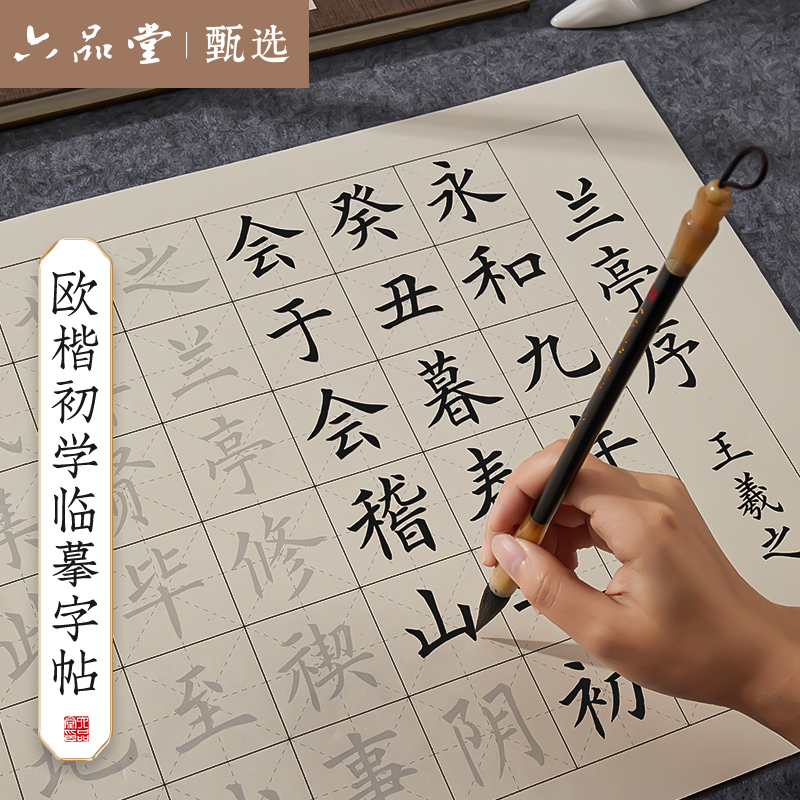 六品堂 | 甄选
欧楷初学临摹字帖
兰亭序
王羲之
永和九初
癸丑暮春
会于会稽山阴
之兰亭修禊事
贤毕至
集此地